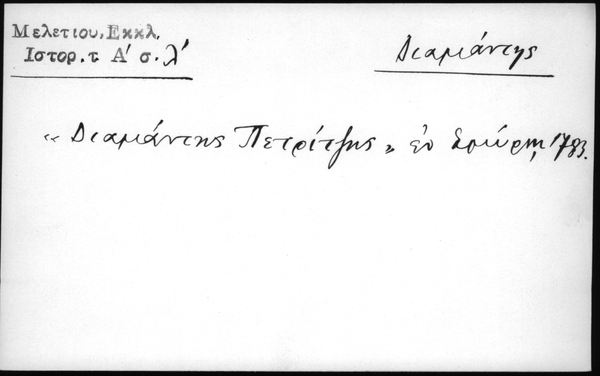 Μελετίου, Εκκλ.
Ιστορ. τ. Α' σ. λ'
Διαμάντης
« Διαμάντης Πετρίτζης » ἐν Σμύρνῃ 1783.